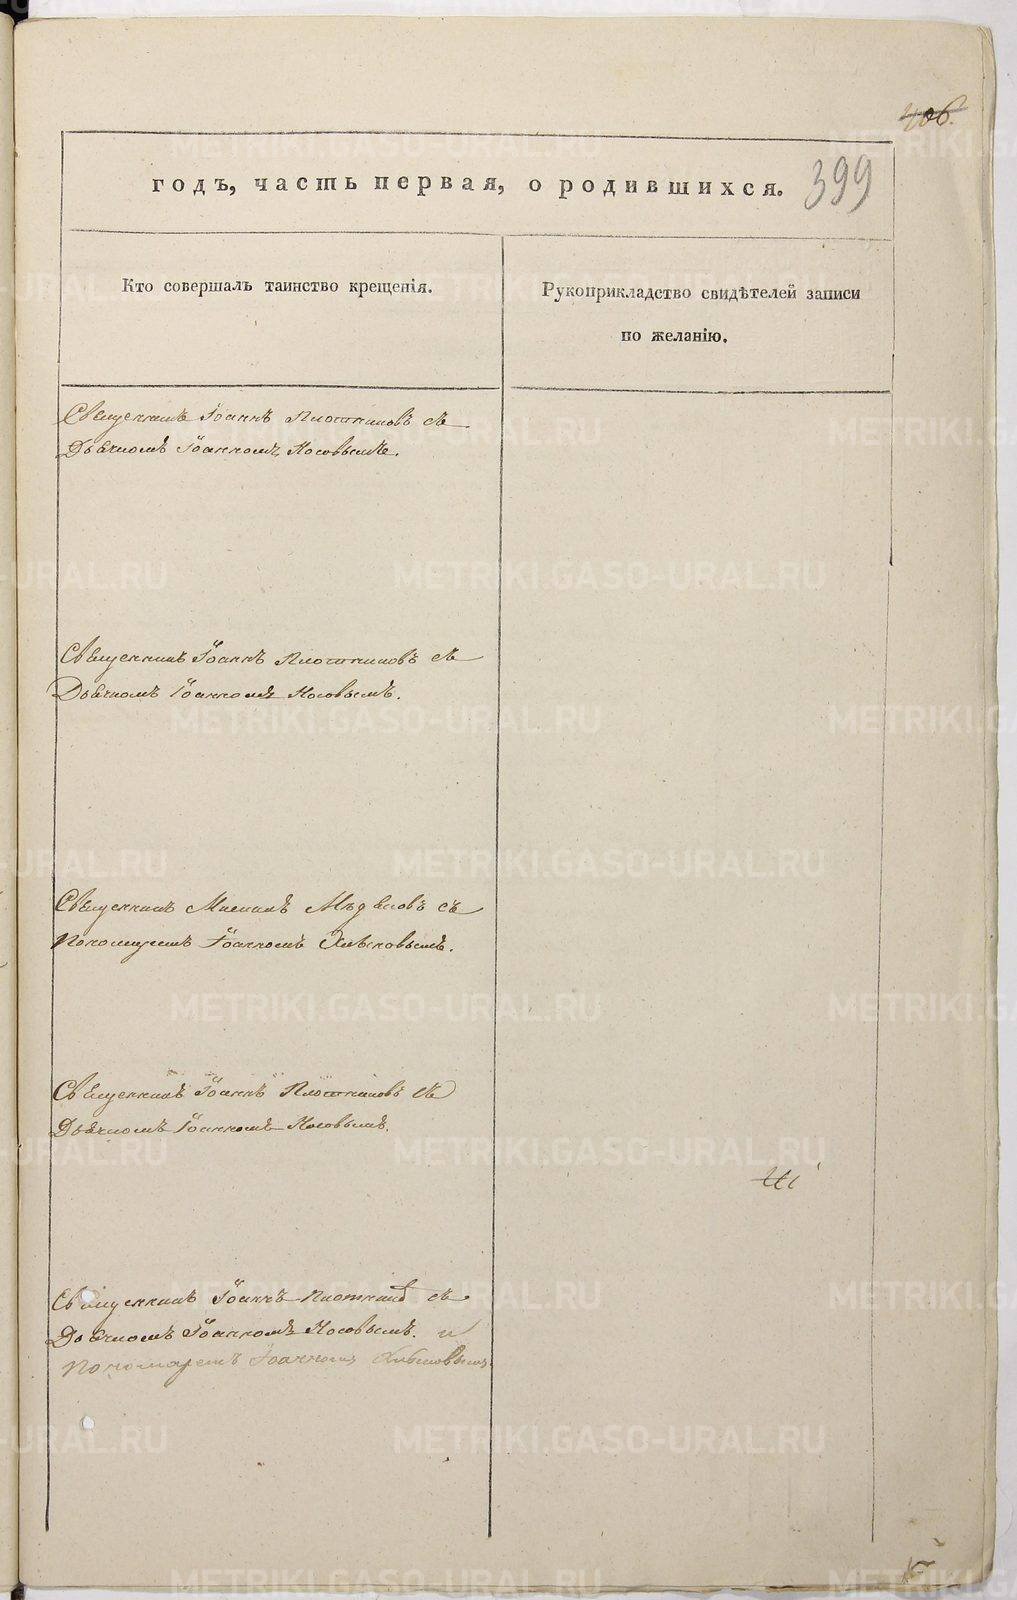 406.
399
годъ, часть первая, о родившихся.
Кто совершалъ таинство крещенія.
Рукоприкладство свидѣтелей записи
по желанію.
Священникъ Іоаннъ Плотниковъ съ
Дьячкомъ Іоанномъ Носовымъ.
Священникъ Іоаннъ Плотниковъ съ
Дьячкомъ Іоанномъ Носовымъ.
Священникъ Михаилъ съ
Пономаремъ Іоанномъ
Священникъ Іоаннъ Плотниковъ съ
Дьячкомъ Іоанномъ Носовымъ.
Священникъ Іоаннъ Плотниковъ съ
Дьячкомъ Іоанномъ Носовымъ. и
Пономаремъ Іоанномъ
METRIKI.GASO-URAL.RU